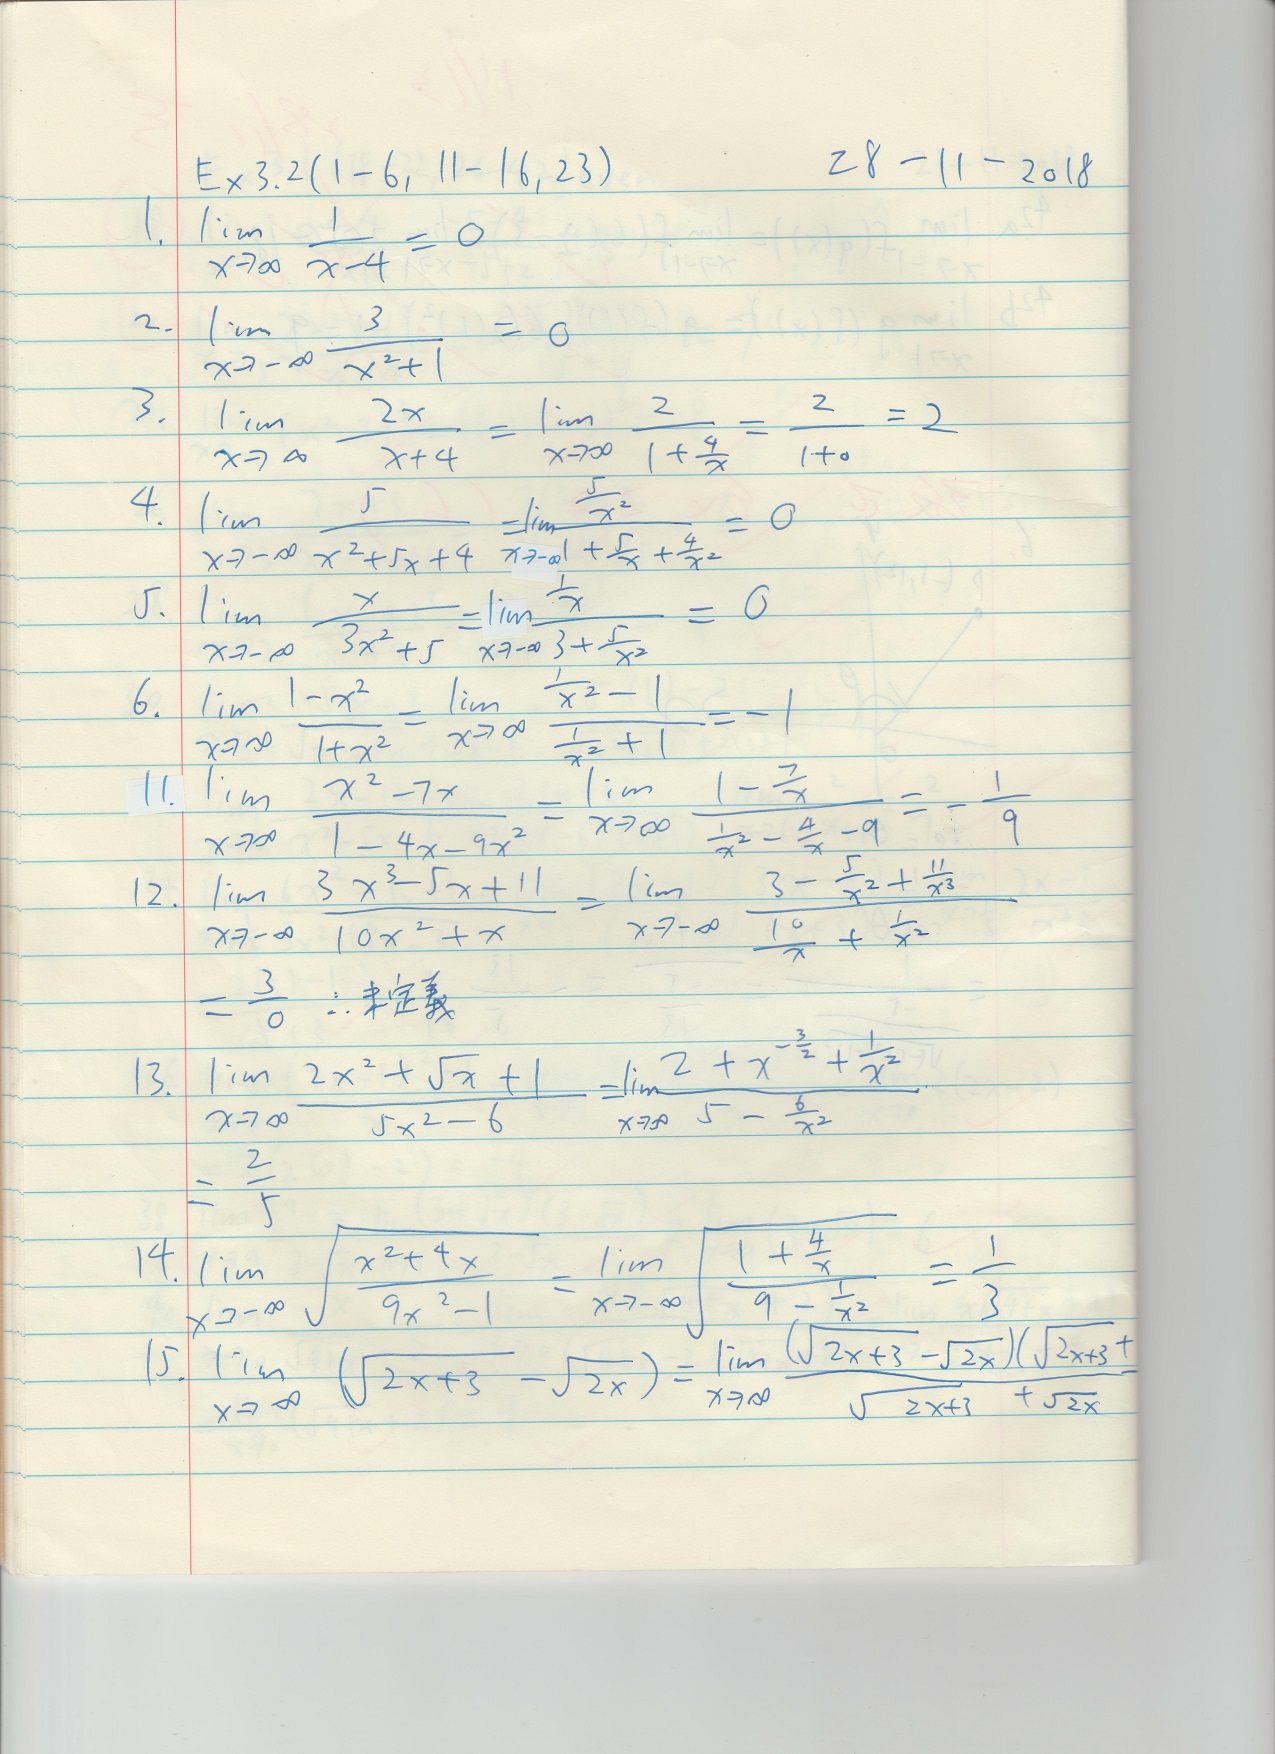 Ex3.2(1-6, 11-16, 23) 28-11-2018
1. lim x→∞ 1/(x-4) = 0
2. lim x→-∞ 3/(x²+1) = 0
3. lim x→∞ 2x/(x+4) = lim x→∞ 2/(1+4/x) = 2/(1+0) = 2
4. lim x→-∞ 5/(x²+5x+4) = lim x→-∞ (5/x²)/(1+5/x+4/x²) = 0
5. lim x→-∞ x/(3x²+5) = lim x→-∞ (1/x)/(3+5/x²) = 0
6. lim x→∞ (1-x²)/(1+x²) = lim x→∞ (1/x²-1)/(1/x²+1) = -1
11. lim x→∞ (x²-7x)/(1-4x-9x²) = lim x→∞ (1-7/x)/(1/x²-4/x-9) = -1/9
12. lim x→-∞ (3x³-5x+11)/(10x²+x) = lim x→-∞ (3-5/x²+11/x³)/(10/x+1/x²)
= 3/0 ∴未定義
13. lim x→∞ (2x²+√x+1)/(5x²-6) = lim x→∞ (2+x^(-3/2)+1/x²)/(5-6/x²)
= 2/5
14. lim x→-∞ √((x²+4x)/(9x²-1)) = lim x→-∞ √((1+4/x)/(9-1/x²)) = 1/3
15. lim x→∞ (√(2x+3)-√(2x)) = lim x→∞ (√(2x+3)-√(2x))(√(2x+3)+ / √(2x+3)+√(2x)